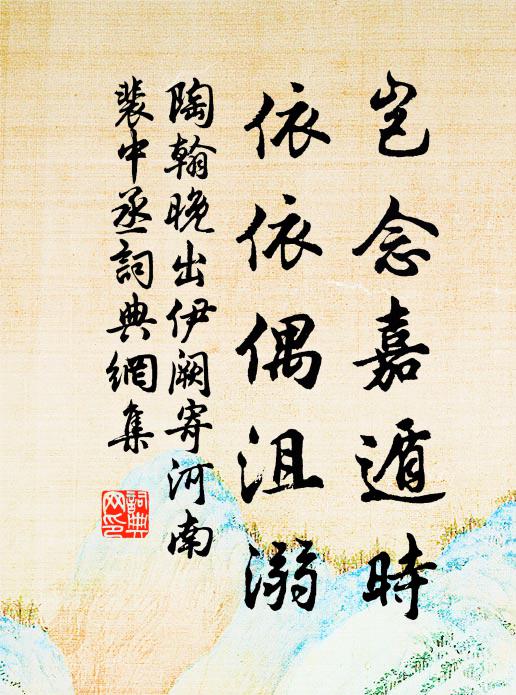 豈念嘉遁時
依依偶沮溺
陶翰晚出伊阙寄河南
裴中丞詞典網集
詞典
网印